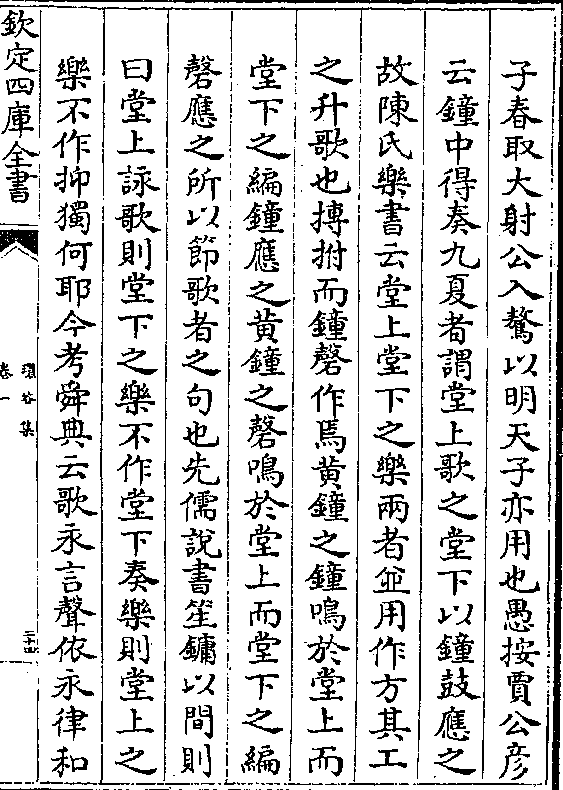 子春取大射公入驁以明天子亦用也愚按賈公彦
云鐘中得奏九夏者謂堂上歌之堂下以鐘鼓應之
故陳氏樂書云堂上堂下之樂兩者並用作方其工
之升歌也搏拊而鐘磬作焉黄鐘之鐘鳴於堂上而
堂下之編鐘應之黄鐘之磬鳴於堂上而堂下之編
磬應之所以節歌者之句也先儒說書笙鏞以間則
曰堂上詠歌則堂下之樂不作堂下奏樂則堂上之
樂不作抑獨何耶今考舜典云歌永言聲依永律和
欽定四庫全書
環谷集
卷一